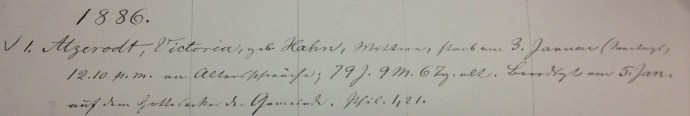 1886.
✓ 1. Atzerodt, Victoria, geb. Hahn, Wittwe, starb am 3. Januar (Sonntag),
12.10 p.m. an Altersschwäche; 79 J. 9 M. 6 Tg. alt. Beerdigt am 5. Jan.
auf dem Gottesacker der Gemeinde. Phil. 1,21.